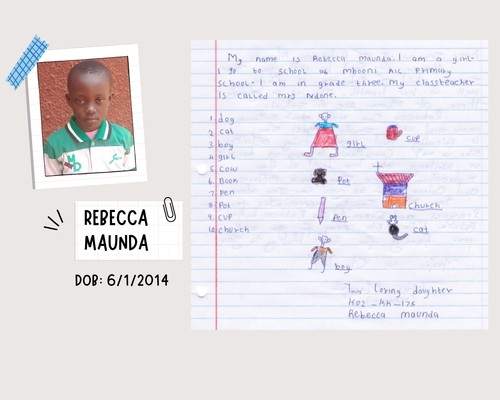 REBECCA
MAUNDA
DOB: 6/1/2014
My name is Rebecca maunda. I am a girl.
I go to school at mbooni AIC primary
school. I am in grade three. My classteacher
is called mrs Ndone.
1. dog
2. cat
3. boy
4. girl
5. cow
6. Book
7. pen
8. Pot
9. cup
10. church
girl
cup
Pot
church
Pen
cat
boy
Your Loving daughter
K02-AK-175
Rebecca maunda